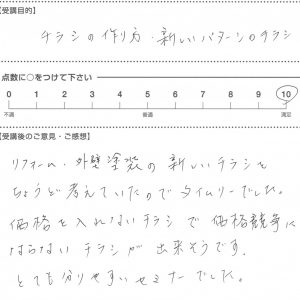 【受講目的】
チラシの作り方・新しいパターンのチラシ
点数に○をつけて下さい
0 1 2 3 4 5 6 7 8 9 10
不満 普通 満足
【受講後のご意見・ご感想】
リフォーム・外壁塗装の新しいチラシを
ちょうど考えていたのでタイムリーでした。
価格を入れないチラシで価格競争に
ならないチラシが出来そうです。
とても分りやすいセミナーでした。